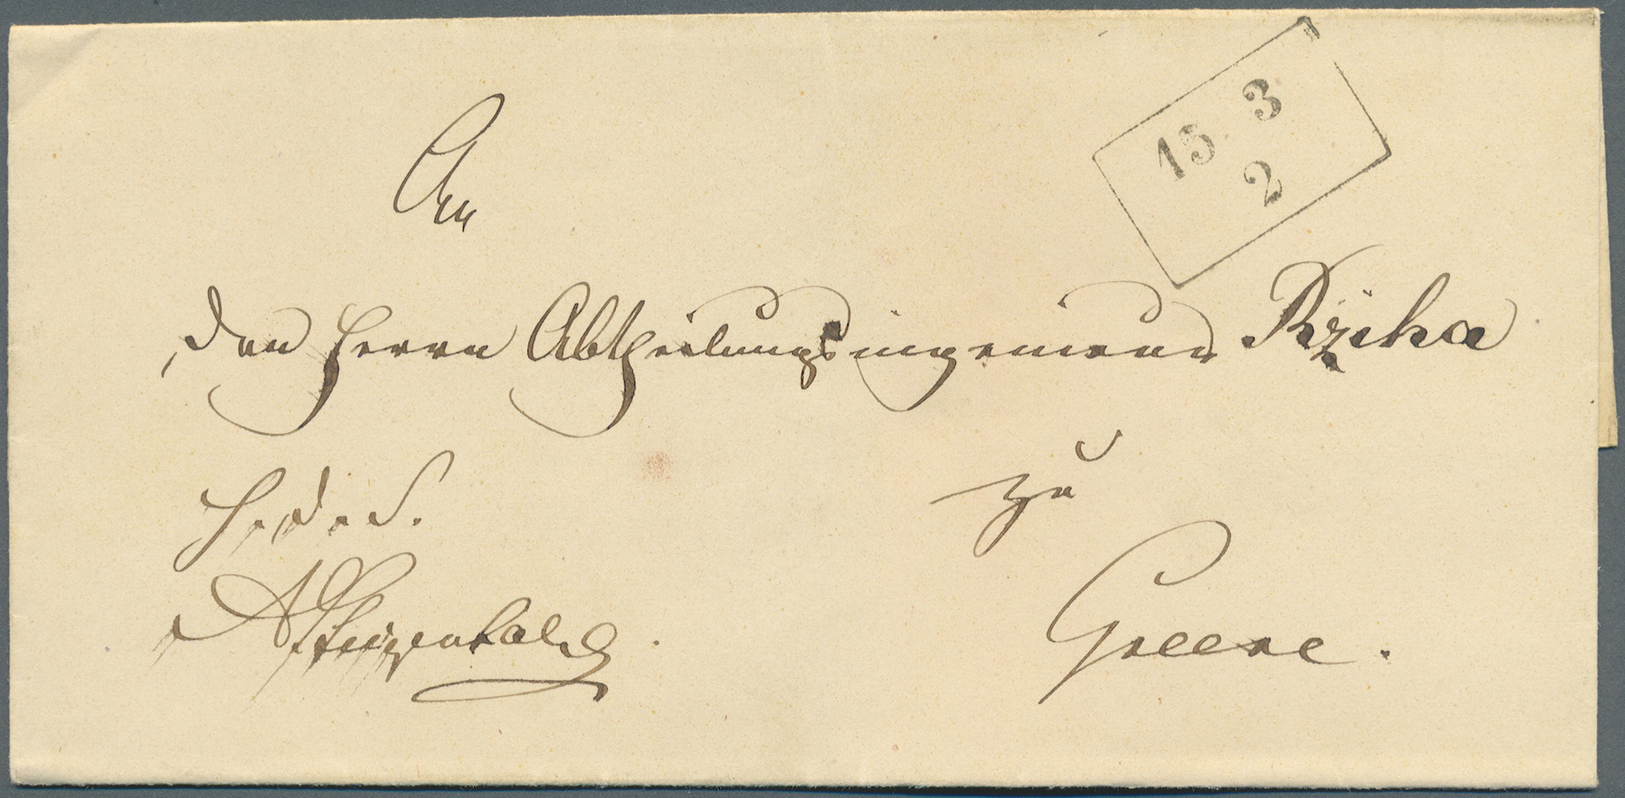 15 3
2
An
den Herrn Abtheilungsingenieur Rziha
zu
H. d. S.
Greene.